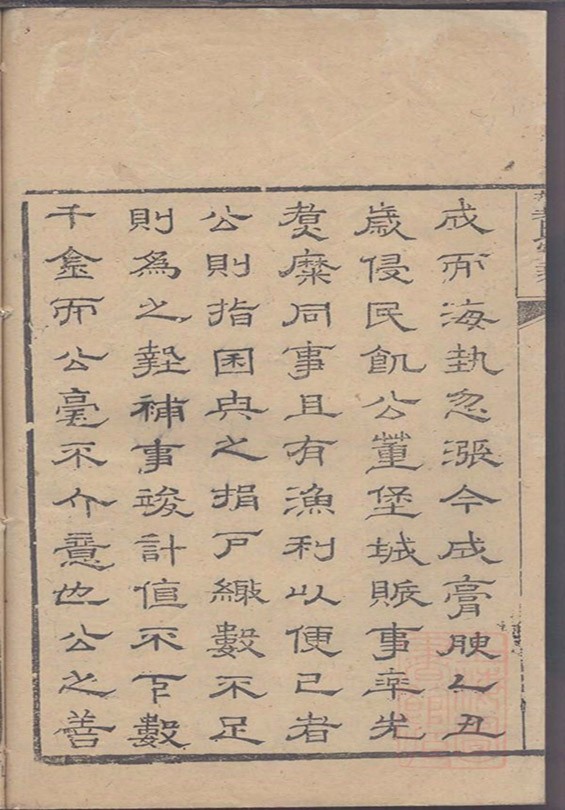 成而海埶忽漲今成膏腴乙丑
歲侵民飢公董堡城賑事率先
煑糜同事且有漁利以便己者
公則指囷與之捐戶繳數不足
則爲之墊補事竣計值不下數
千金而公毫不介意也公之善